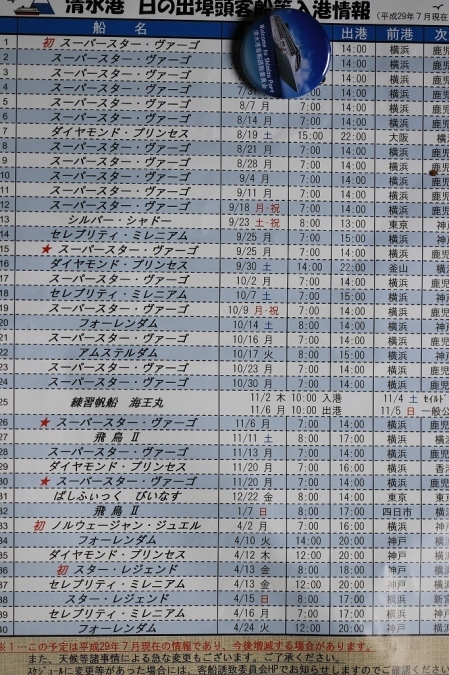 清水港 日の出埠頭客船等入港情報 (平成29年7月現在
船 名 出港 前港 次
1 初 スーパースター・ヴァーゴ 14:00 横浜 鹿児
2 スーパースター・ヴァーゴ 14:00 横浜 鹿児
3 スーパースター・ヴァーゴ 14:00 横浜 鹿児
4 スーパースター・ヴァーゴ 14:00 横浜 鹿児
5 スーパースター・ヴァーゴ 8/7 月 7:00 14:00 横浜 鹿児
6 スーパースター・ヴァーゴ 8/14 月 7:00 14:00 横浜 鹿児
7 ダイヤモンド・プリンセス 8/19 土 15:00 22:00 大阪 横
8 スーパースター・ヴァーゴ 8/21 月 7:00 14:00 横浜 鹿児
9 スーパースター・ヴァーゴ 8/28 月 7:00 14:00 横浜 鹿児
10 スーパースター・ヴァーゴ 9/4 月 7:00 14:00 横浜 鹿児
11 スーパースター・ヴァーゴ 9/11 月 7:00 14:00 横浜 鹿児
12 スーパースター・ヴァーゴ 9/18 月・祝 7:00 14:00 横浜 鹿児
13 シルバー・シャドー 9/23 土・祝 8:00 13:00 東京 神戸
14 セレブリティ・ミレニアム 9/25 月 7:00 15:00 横浜 神戸
15 ★ スーパースター・ヴァーゴ 9/25 月 7:00 14:00 横浜 鹿児
16 ダイヤモンド・プリンセス 9/30 土 14:00 22:00 釜山 横
17 スーパースター・ヴァーゴ 10/2 月 7:00 14:00 横浜 鹿児
18 セレブリティ・ミレニアム 10/7 土 7:00 15:00 横浜 神戸
19 スーパースター・ヴァーゴ 10/9 月・祝 7:00 14:00 横浜 鹿児
20 フォーレンダム 10/14 土 8:00 14:00 横浜 神戸
21 スーパースター・ヴァーゴ 10/16 月 7:00 14:00 横浜 鹿児
22 アムステルダム 10/17 火 8:00 15:00 横浜 神戸
23 スーパースター・ヴァーゴ 10/23 月 7:00 14:00 横浜 鹿児
24 スーパースター・ヴァーゴ 10/30 月 7:00 14:00 横浜 鹿児
25 練習帆船 海王丸 11/2 木 10:00 入港 11/4 土 セイルド
11/6 月 10:00 出港 11/5 日 一般公
26 ★ スーパースター・ヴァーゴ 11/6 月 7:00 14:00 横浜 鹿児
27 飛鳥Ⅱ 11/11 土 8:00 17:00 横浜 横
28 スーパースター・ヴァーゴ 11/13 月 7:00 14:00 横浜 鹿児
29 ダイヤモンド・プリンセス 11/20 月 7:00 16:00 横浜 香港
30 ★ スーパースター・ヴァーゴ 11/20 月 7:00 14:00 横浜 鹿児
31 ぱしふぃっく びいなす 12/22 金 8:00 14:00 東京 東京
32 飛鳥Ⅱ 1/7 日 8:00 17:00 四日市 横
33 初 ノルウェージャン・ジュエル 4/2 月 7:00 16:00 横浜 神
34 フォーレンダム 4/10 火 7:00 14:00 神戸 横
35 ダイヤモンド・プリンセス 4/12 木 12:00 20:00 神戸 横
36 初 スター・レジェンド 4/13 金 8:00 18:00 神戸
37 セレブリティ・ミレニアム 4/13 金 12:00 20:00 神戸 横
38 スター・レジェンド 4/15 日 8:00 17:00 横浜 新宮
39 セレブリティ・ミレニアム 4/16 月 7:00 17:00 横浜 神戸
40 フォーレンダム 4/24 火 12:00 20:00 神戸 横
※1…この予定は平成29年7月現在の情報であり、今後増減する場合があります。
また、天候等諸事情による急な変更もございます。ご了承ください。
スケジュールに変更等があった場合には、客船誘致委員会HPでお知らせしますのでご確認ください
Welcome to Shimizu Port
清水港客船誘致委員会